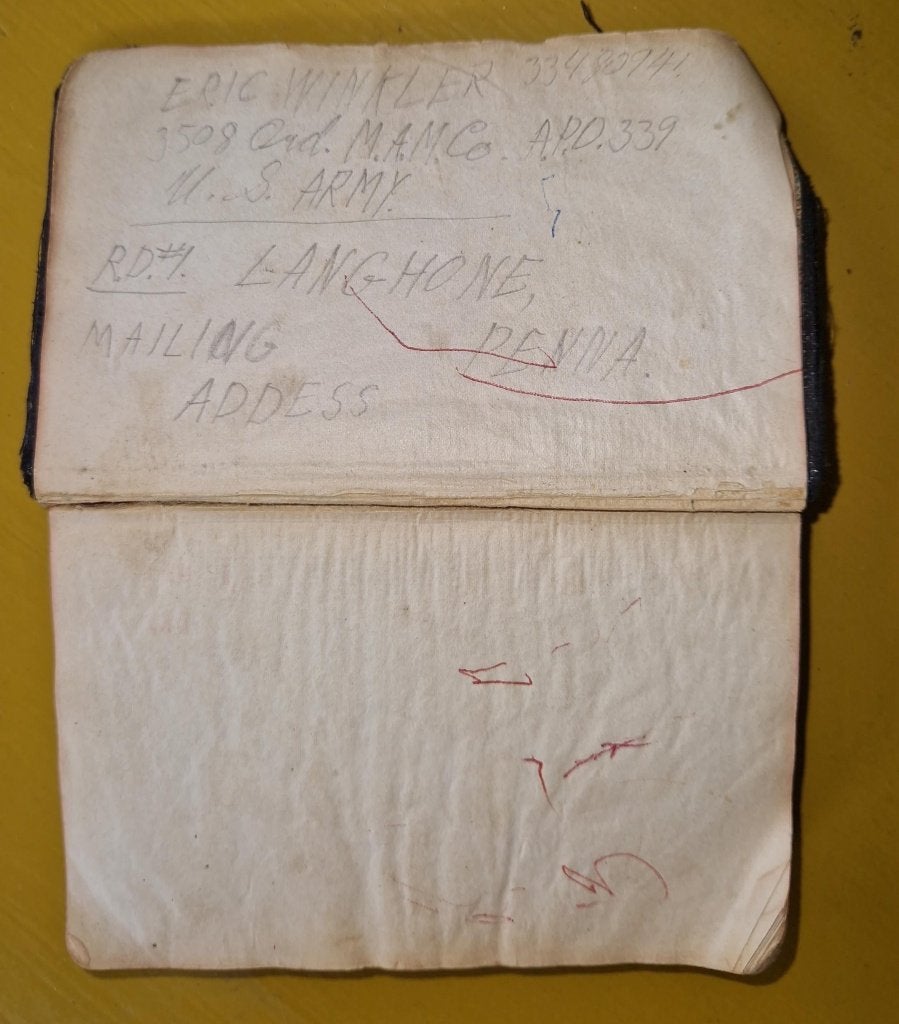 ERIC WINKLER 33480941
3508 Ord. M.A.M.Co. A.P.O. 339
U.S. ARMY.
R.D.#1. LANGHONE,
MAILING PENNA.
ADDESS